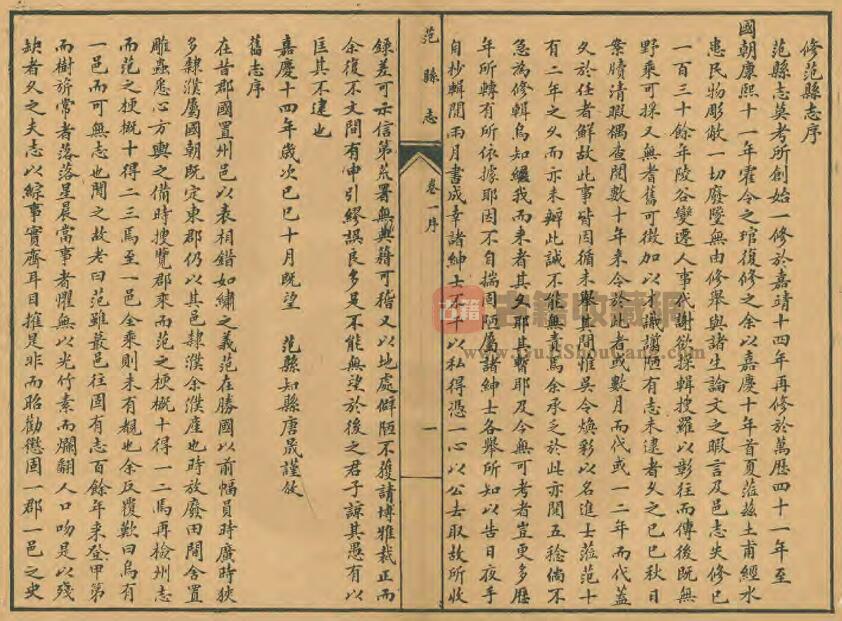 修范縣志序
范縣志莫考所創始一修於嘉靖十四年再修於萬歷四十一年至
國朝康熙十一年霍令之琯復修之余以嘉慶十年首夏蒞兹土甫經水
患民物彫敝一切廢墜無由修舉與諸生論文之暇言及邑志失修已
一百三十餘年陵谷變遷人事代謝欲採輯搜羅以彰往而傳後既無
野乘可採又無耆舊可徵加以才識譾陋有志未逮者久之己巳秋日
案牘清暇偶查閱數十年來令於此者或數月而代或一二年而代蓋
久於任者鮮故此事皆因循未舉其間惟吳令煥彩以名進士蒞范十
有二年之久而亦未辦此誠不能無責焉余承乏於此亦閱五稔倘不
急為修輯烏知繼我而來者其久耶其暫耶及今無可考者豈更多歷
年所轉有所依據耶因不自揣固陋屬諸紳士各舉所知以告日夜手
自抄輯閱兩月書成幸諸紳士不干以私得憑一心以公去取故所收
范縣志
卷一序
一
錄差可示信第荒署無典籍可稽又以地處僻陋不獲請博雅裁正而
余復不文間有申引繆誤良多是不能無望於後之君子諒其愚有以
匡其不逮也
嘉慶十四年歲次己巳十月既望 范縣知縣唐晟謹敘
舊志序
在昔郡國置州邑以表相錯如繡之義范在勝國以前幅員時廣時狹
多隸濮屬國朝既定東郡仍以其邑隸濮余濮產也時放廢田間舍置
雕蟲悉心方輿之備時搜覽郡乘而范之梗概十得一二焉再檢州志
而范之梗概十得二三焉至一邑全乘則未有覩也余反覆歎曰烏有
一邑而可無志也閱之故老曰范雖蕞邑往固有志百餘年來登甲第
而樹旂常者落落星晨當事者懼無以光竹素而爛翻人口吻是以殘
缺者久之夫志以綜事實齊耳目搉是非而昭勸懲固一郡一邑之史
古籍收藏网
www.GuJiShouCang.com